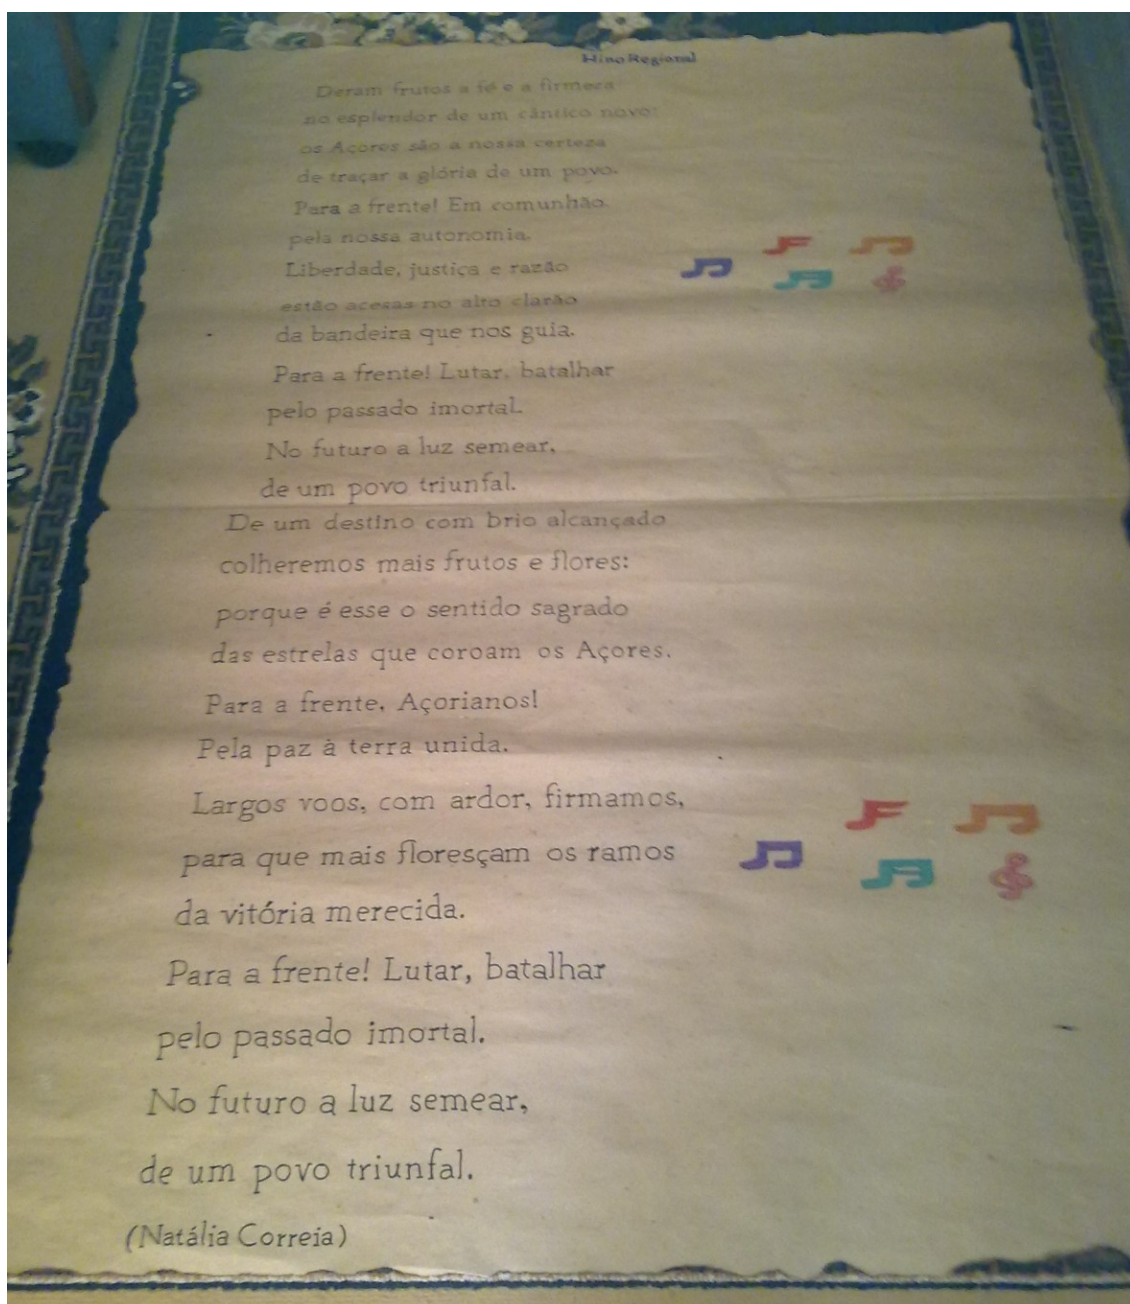 Hino Regional
Deram frutos a fé e a firmeza
no esplendor de um cântico novo:
os Açores são a nossa certeza
de traçar a glória de um povo.
Para a frente! Em comunhão,
pela nossa autonomia.
Liberdade, justiça e razão
estão acesas no alto clarão
da bandeira que nos guia.
Para a frente! Lutar, batalhar
pelo passado imortal.
No futuro a luz semear,
de um povo triunfal.
De um destino com brio alcançado
colheremos mais frutos e flores:
porque é esse o sentido sagrado
das estrelas que coroam os Açores.
Para a frente, Açorianos!
Pela paz à terra unida.
Largos voos, com ardor, firmamos,
para que mais floresçam os ramos
da vitória merecida.
Para a frente! Lutar, batalhar
pelo passado imortal.
No futuro a luz semear,
de um povo triunfal.
(Natália Correia)